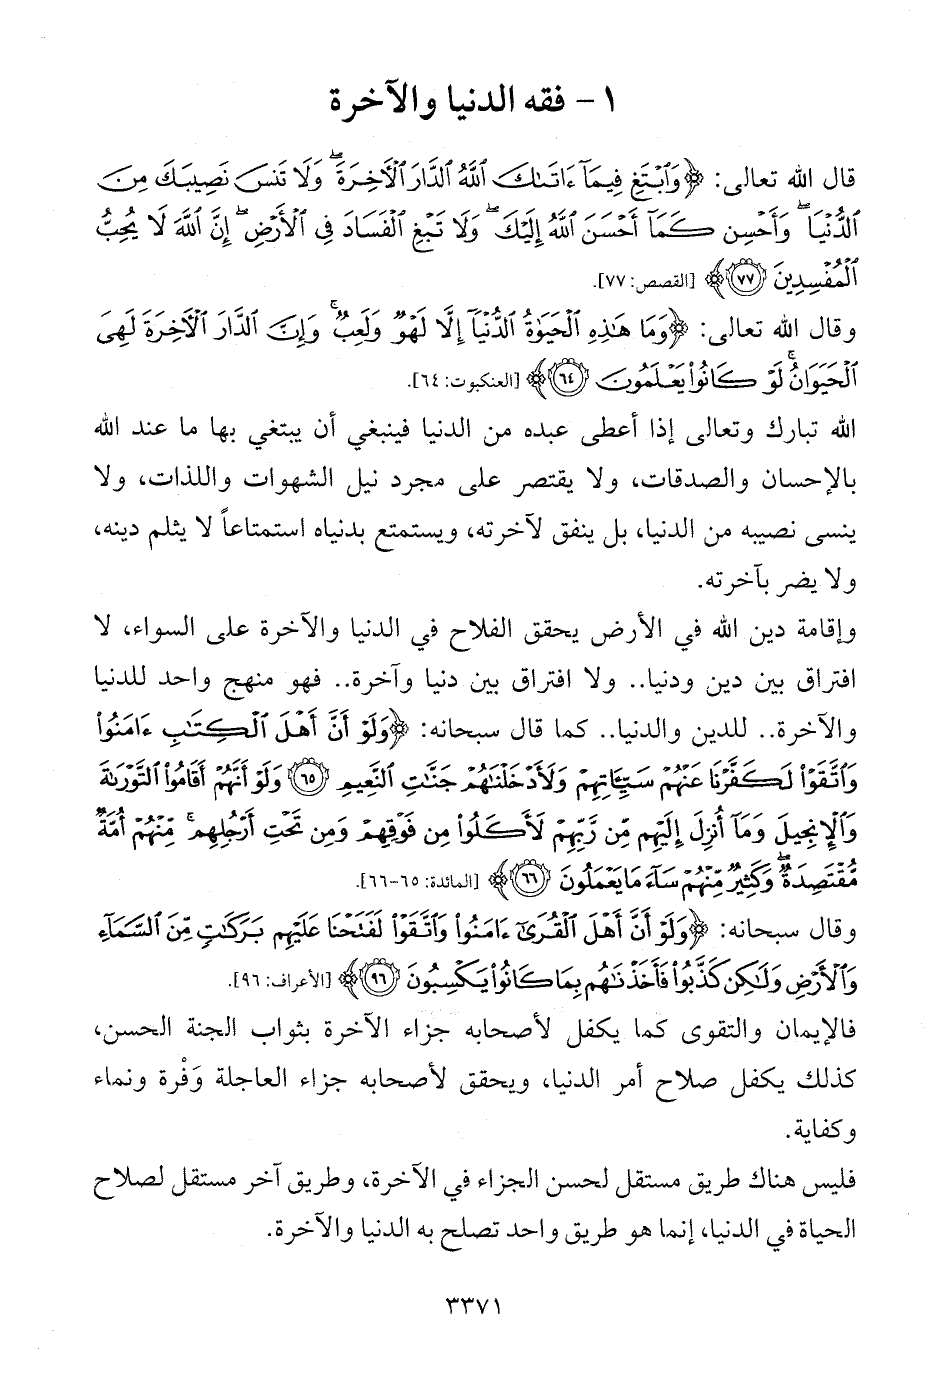 ١- فقه الدنيا والآخرة
قال الله تعالى: ﴿وَٱبْتَغِ فِيمَآ ءَاتَىٰكَ ٱللَّهُ ٱلدَّارَ ٱلْأَخِرَةَ ۖ وَلَا تَنسَ نَصِيبَكَ مِنَ
ٱلدُّنْيَا ۖ وَأَحْسِن كَمَآ أَحْسَنَ ٱللَّهُ إِلَيْكَ ۖ وَلَا تَبْغِ ٱلْفَسَادَ فِى ٱلْأَرْضِ ۖ إِنَّ ٱللَّهَ لَا يُحِبُّ
ٱلْمُفْسِدِينَ ٧٧﴾ [القصص: ٧٧].
وقال الله تعالى: ﴿وَمَا هَٰذِهِ ٱلْحَيَوٰةُ ٱلدُّنْيَآ إِلَّا لَهْوٌ وَلَعِبٌ ۚ وَإِنَّ ٱلدَّارَ ٱلْأَخِرَةَ لَهِىَ
ٱلْحَيَوَانُ ۚ لَوْ كَانُوا۟ يَعْلَمُونَ ٦٤﴾ [العنكبوت: ٦٤].
الله تبارك وتعالى إذا أعطى عبده من الدنيا فينبغي أن يبتغي بها ما عند الله
بالإحسان والصدقات، ولا يقتصر على مجرد نيل الشهوات واللذات، ولا
ينسى نصيبه من الدنيا، بل ينفق لآخرته، ويستمتع بدنياه استمتاعاً لا يثلم دينه،
ولا يضر بآخرته.
وإقامة دين الله في الأرض يحقق الفلاح في الدنيا والآخرة على السواء، لا
افتراق بين دين ودنيا.. ولا افتراق بين دنيا وآخرة.. فهو منهج واحد للدنيا
والآخرة.. للدين والدنيا.. كما قال سبحانه: ﴿وَلَوْ أَنَّ أَهْلَ ٱلْكِتَٰبِ ءَامَنُوا۟
وَٱتَّقَوْا۟ لَكَفَّرْنَا عَنْهُمْ سَيِّـَٔاتِهِمْ وَلَأَدْخَلْنَٰهُمْ جَنَّٰتِ ٱلنَّعِيمِ ٦٥ وَلَوْ أَنَّهُمْ أَقَامُوا۟ ٱلتَّوْرَىٰةَ
وَٱلْإِنجِيلَ وَمَآ أُنزِلَ إِلَيْهِم مِّن رَّبِّهِمْ لَأَكَلُوا۟ مِن فَوْقِهِمْ وَمِن تَحْتِ أَرْجُلِهِم ۚ مِّنْهُمْ أُمَّةٌ
مُّقْتَصِدَةٌ ۖ وَكَثِيرٌ مِّنْهُمْ سَآءَ مَا يَعْمَلُونَ ٦٦﴾ [المائدة: ٦٥-٦٦].
وقال سبحانه: ﴿وَلَوْ أَنَّ أَهْلَ ٱلْقُرَىٰٓ ءَامَنُوا۟ وَٱتَّقَوْا۟ لَفَتَحْنَا عَلَيْهِم بَرَكَٰتٍ مِّنَ ٱلسَّمَآءِ
وَٱلْأَرْضِ وَلَٰكِن كَذَّبُوا۟ فَأَخَذْنَٰهُم بِمَا كَانُوا۟ يَكْسِبُونَ ٩٦﴾ [الأعراف: ٩٦].
فالإيمان والتقوى كما يكفل لأصحابه جزاء الآخرة بثواب الجنة الحسن،
كذلك يكفل صلاح أمر الدنيا، ويحقق لأصحابه جزاء العاجلة وَفْرة ونماء
وكفاية.
فليس هناك طريق مستقل لحسن الجزاء في الآخرة، وطريق آخر مستقل لصلاح
الحياة في الدنيا، إنما هو طريق واحد تصلح به الدنيا والآخرة.
٣٣٧١